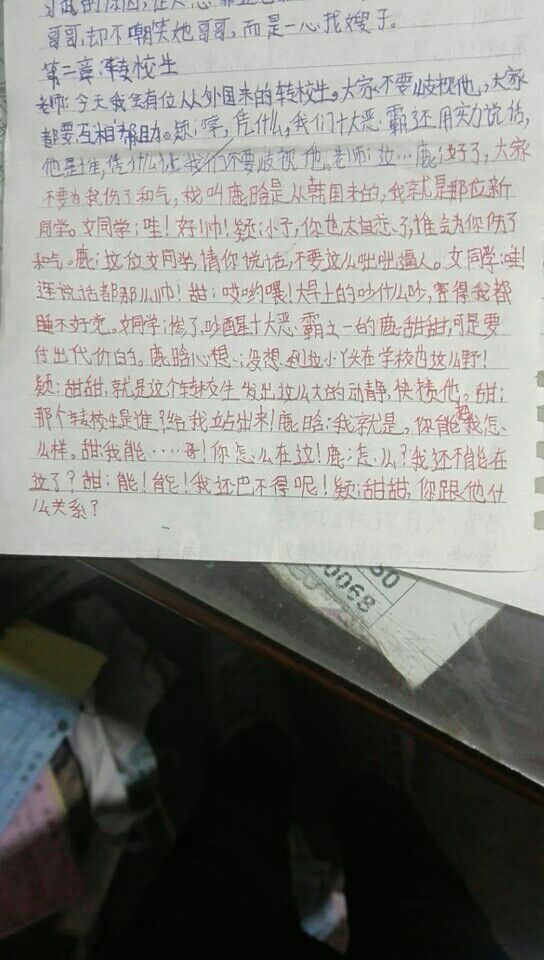 哥哥,却不嘲笑她哥哥,而是一心找嫂子。
第二章:转校生
老师:今天我会有位从外国来的转校生。大家不要歧视他,大家
都要互相帮助。颖:哼,凭什么,我们十大恶霸还用实力说话,
他是谁,凭什么让我们不要歧视他。老师:这…鹿:好了,大家
不要为我伤了和气,我叫鹿晗是从韩国来的,我就是那位新
同学。女同学:哇!好帅!颖:小子,你也太自恋了,谁会为你伤了
和气。鹿:这位女同学,请你说话,不要这么咄咄逼人。女同学:哇!
连说话都那么帅!甜:哎哟喂!大早上的吵什么吵,害得我都
睡不好觉。女同学:惨了,吵醒十大恶霸之一的鹿甜甜,可是要
付出代价的。鹿晗心想:没想到这小伙在学校也这么野!
颖:甜甜,就是这个转校生发出这么大的动静,快揍他。甜:
那个转校生是谁?给我站出来!鹿晗:我就是,你能把我怎
么样。甜:我能……哥!你怎么在这!鹿:怎么?我还不能在
这了?甜:能!能!我还巴不得呢!颖:甜甜,你跟他什
么关系?
0068